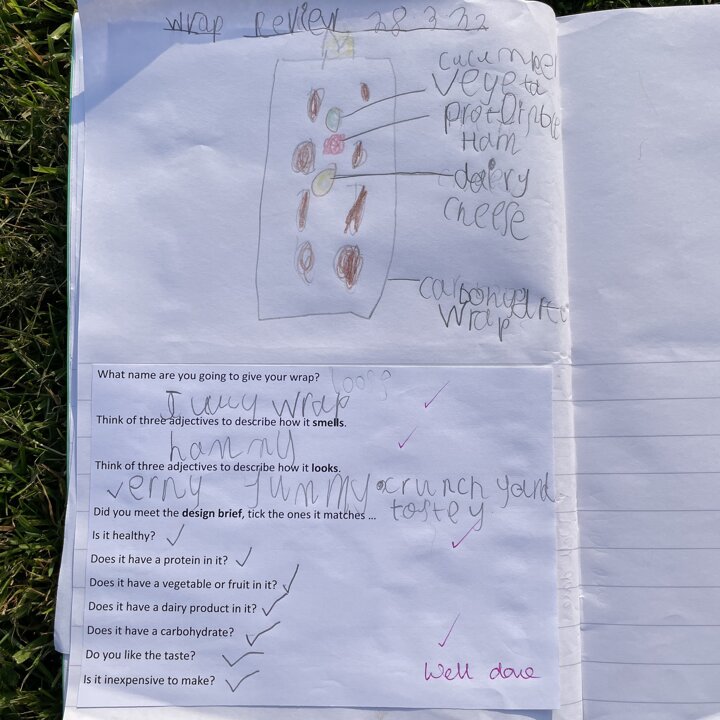 wrap review 28.3.22
cucumber
Vegeta
protein
Ham
dairy
cheese
carbohydrate
Wrap
What name are you going to give your wrap?
wrap
Think of three adjectives to describe how it smells.
hammy
Think of three adjectives to describe how it looks.
verny yummy crunchy and
tastey
Did you meet the design brief, tick the ones it matches ...
Is it healthy? ✓
Does it have a protein in it? ✓
Does it have a vegetable or fruit in it? ✓
Does it have a dairy product in it? ✓
Does it have a carbohydrate? ✓
Do you like the taste? ✓
Is it inexpensive to make? ✓
Well done